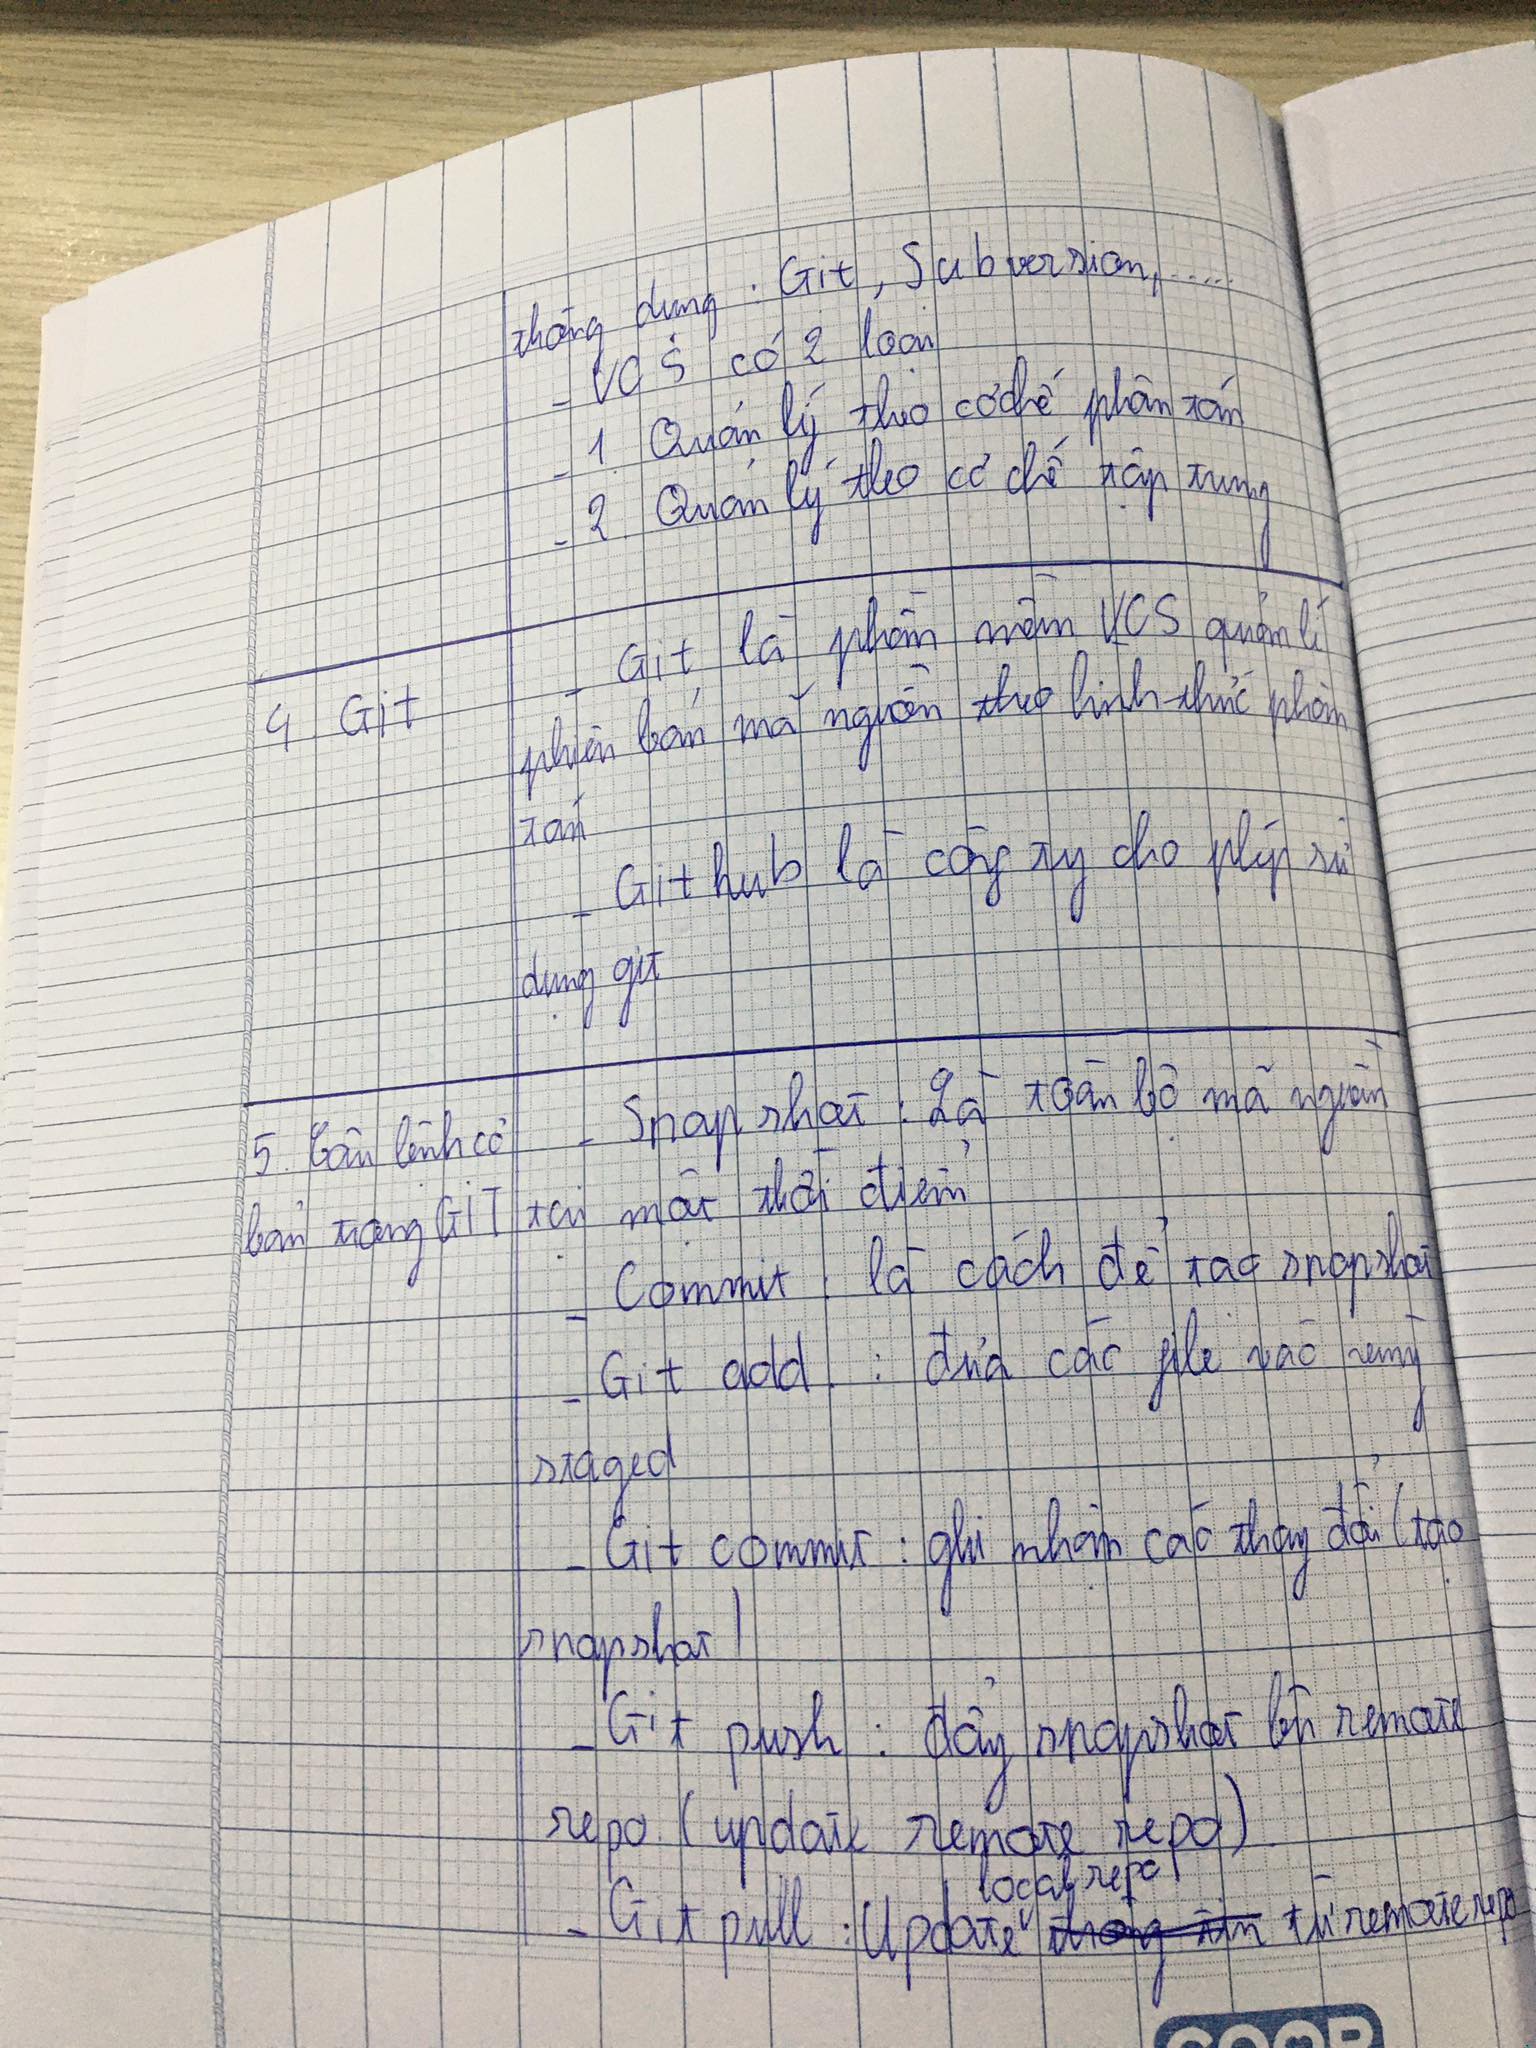 thông dụng : Git, Subversion, .....
- VCS có 2 loại
- 1. Quản lý theo cơ chế phân tán
- 2. Quản lý theo cơ chế tập trung
4. Git
- Git là phần mềm VCS quản lí
phiên bản mã nguồn theo hình thức phân
tán
- Github là công ty cho phép sử
dụng git
5. Câu lệnh cơ
bản trong GIT
- Snapshot : Là toàn bộ mã nguồn
tại một thời điểm
- Commit : là cách để tạo snapshot
- Git add : đưa các file vào vùng
staged
- Git commit : ghi nhận các thay đổi (tạo
snapshot)
- Git push : đẩy snapshot lên remote
repo. (update remote repo).
local repo
- Git pull : Update thông tin từ remote repo
COOP